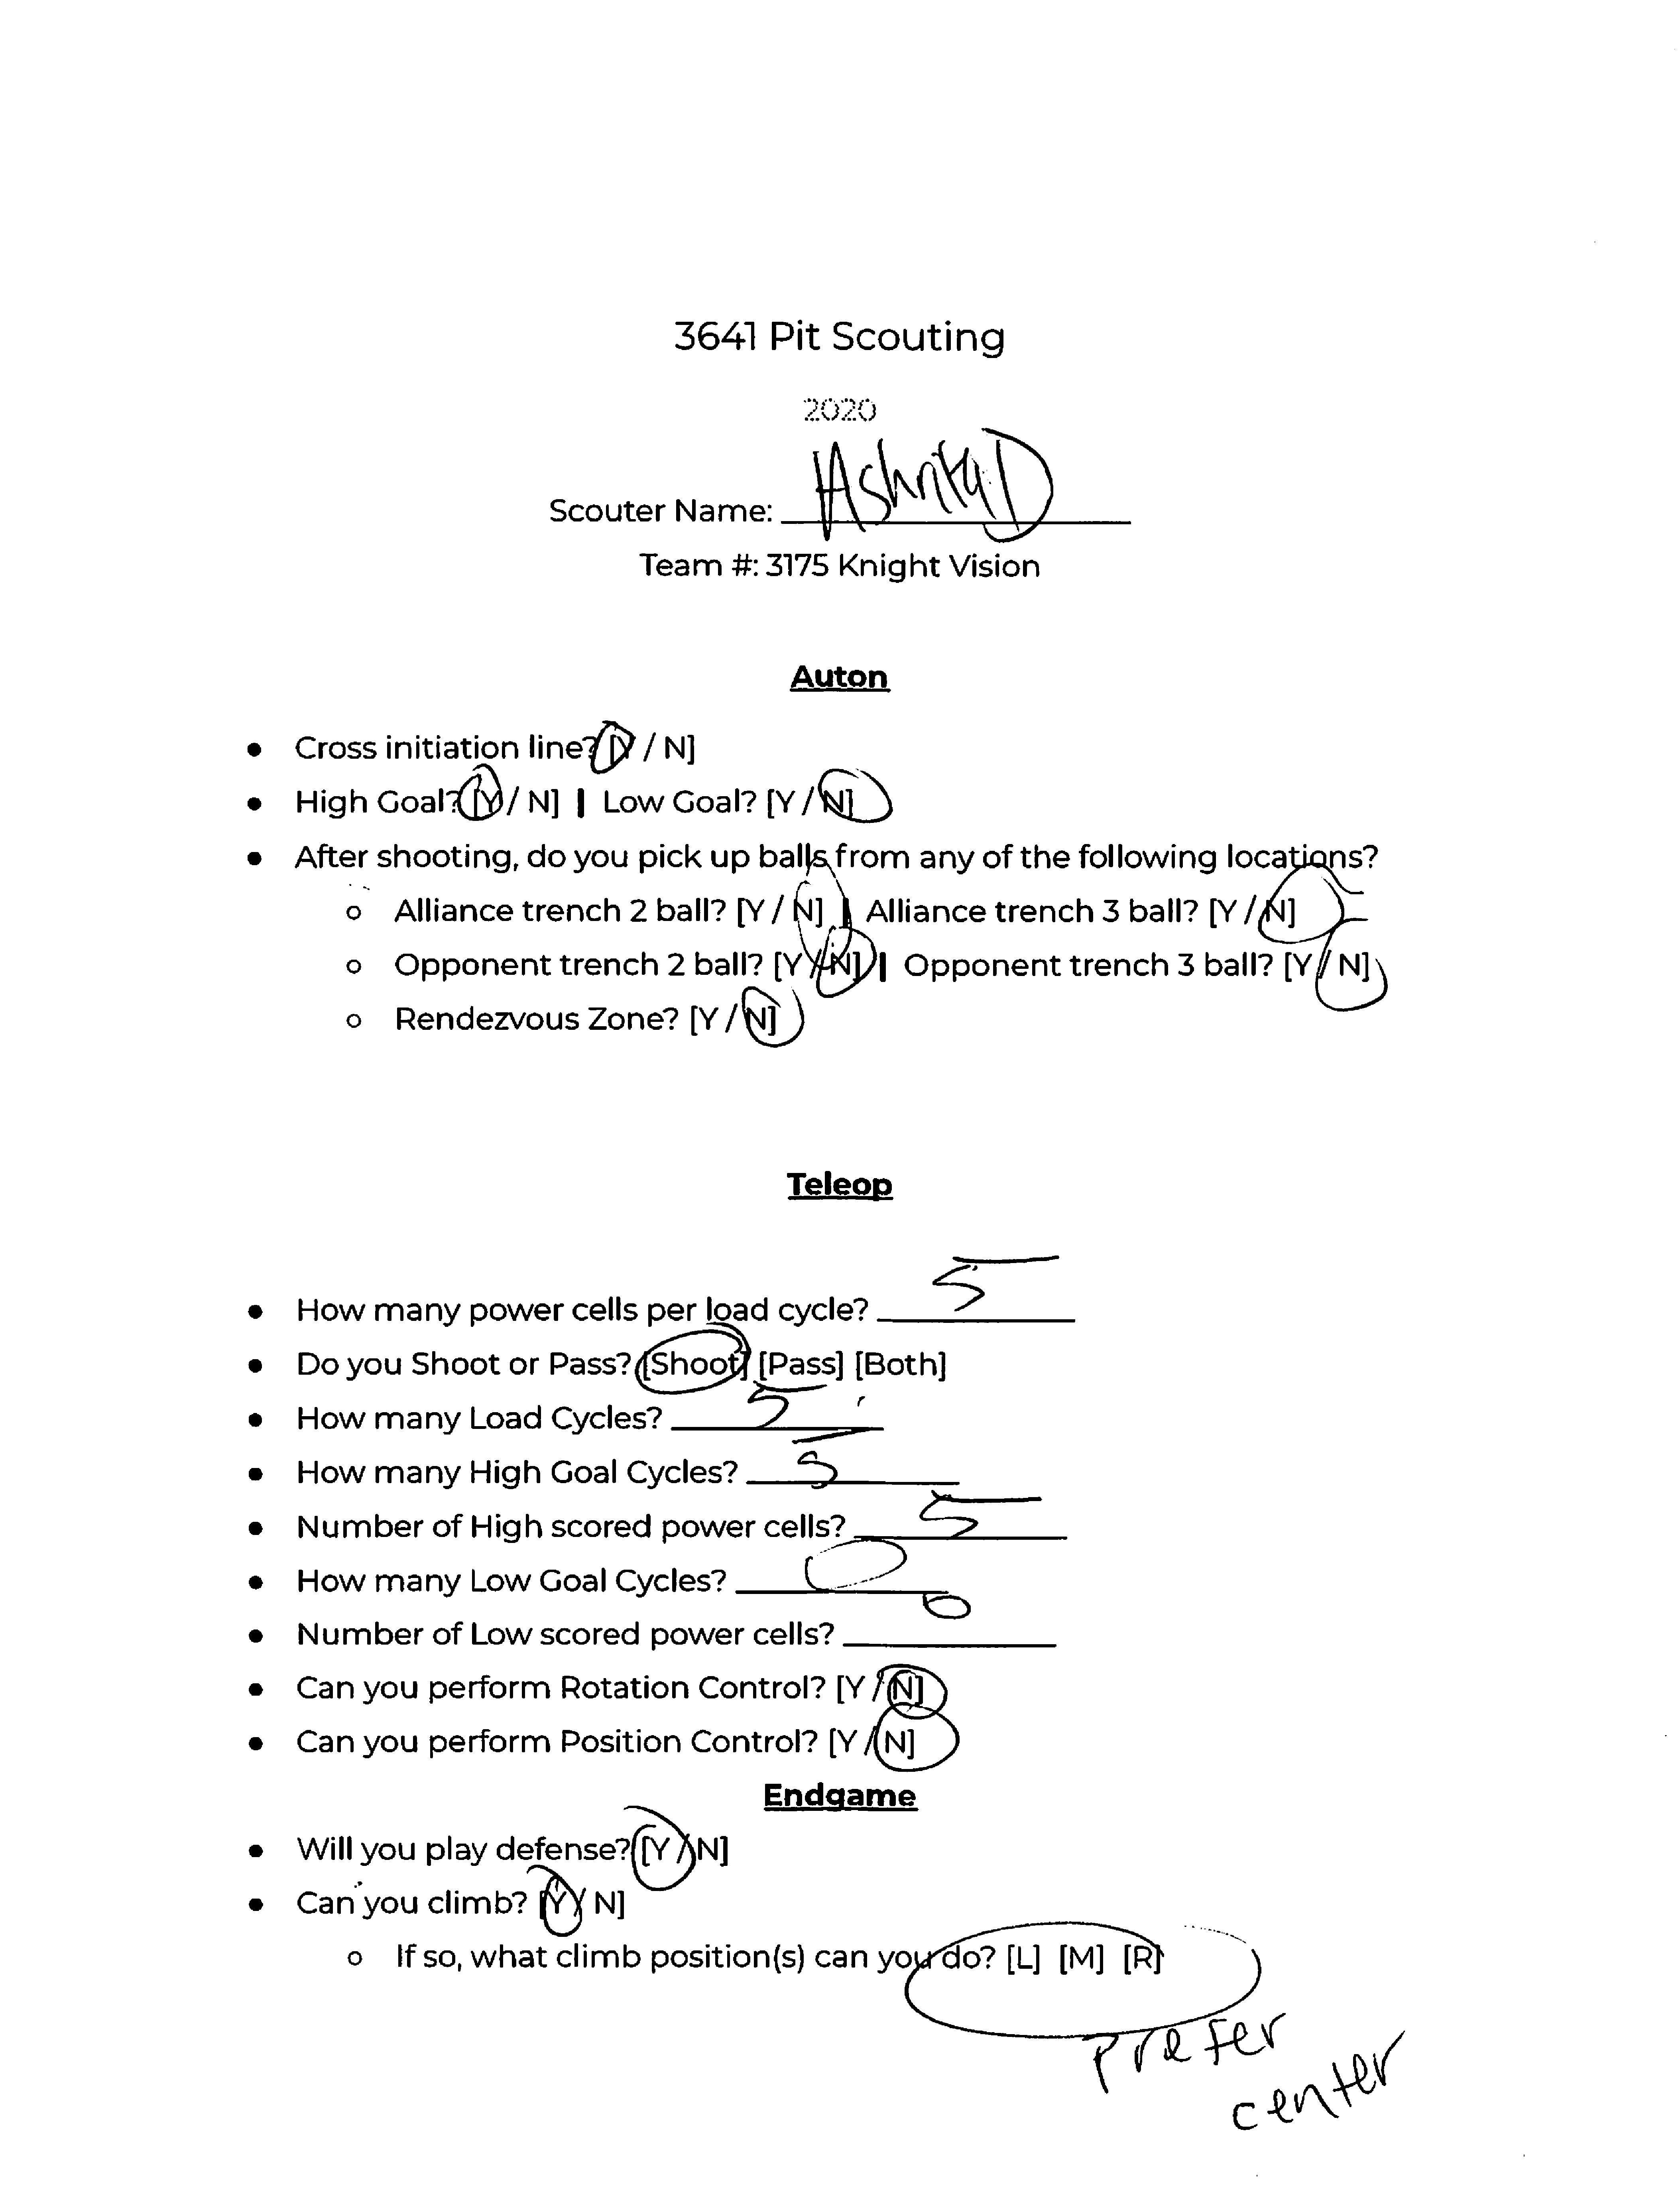 3641 Pit Scouting
2020
Scouter Name: Ashrita D
Team #: 3175 Knight Vision
Auton
• Cross initiation line? [Y / N]
• High Goal? [Y / N] | Low Goal? [Y / N]
• After shooting, do you pick up balls from any of the following locations?
○ Alliance trench 2 ball? [Y / N] | Alliance trench 3 ball? [Y / N]
○ Opponent trench 2 ball? [Y / N] | Opponent trench 3 ball? [Y / N]
○ Rendezvous Zone? [Y / N]
Teleop
• How many power cells per load cycle? 5
• Do you Shoot or Pass? [Shoot] [Pass] [Both]
• How many Load Cycles? 5
• How many High Goal Cycles? 5
• Number of High scored power cells? 5
• How many Low Goal Cycles? 0
• Number of Low scored power cells? 0
• Can you perform Rotation Control? [Y / N]
• Can you perform Position Control? [Y / N]
Endgame
• Will you play defense? [Y / N]
• Can you climb? [Y / N]
○ If so, what climb position(s) can you do? [L] [M] [R]
prefer
center